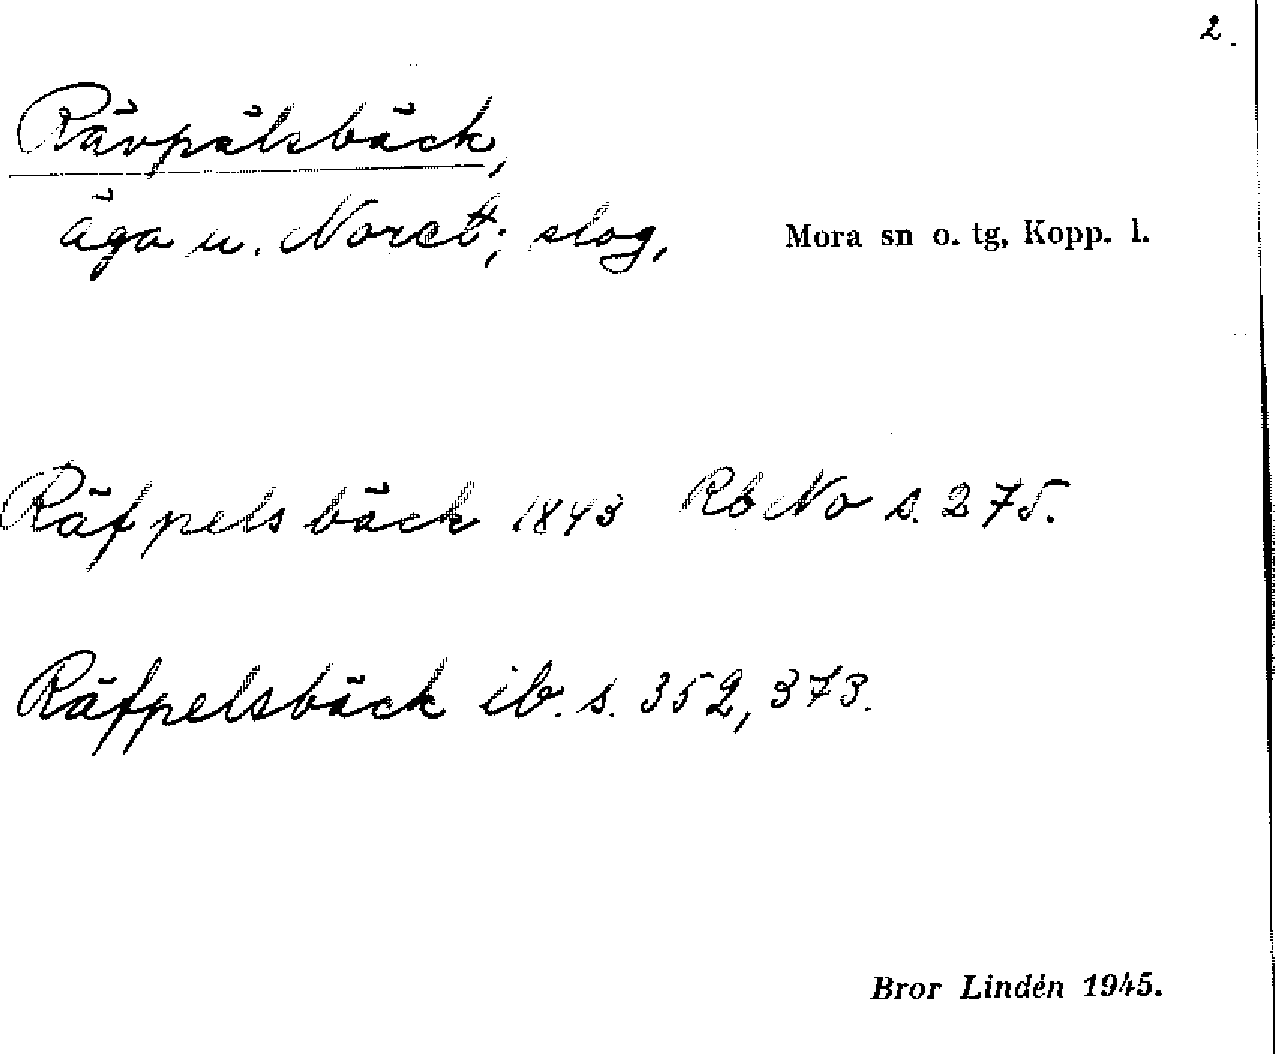 2.
Rävpälsbäck,
äga u. Noret; slog,
Mora sn o. tg, Kopp. l.
Räfpels bäck 1843 Rb No s. 275.
Räfpelsbäck ib. s. 352, 373.
Bror Lindén 1945.